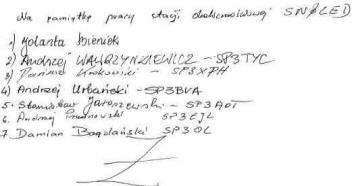 Na pamiątkę pracy stacji okolicznościowej SNØLED
1) Jolanta
2) Andrzej WAWRZYNKIEWICZ - SP3TYC
3) Krakowski - SP3XPH
4) Andrzej Urbański - SP3BVA
5. Stanisław Jaroszewski - SP3AOT
6. Andrzej SP3EJL
7. Damian Bogdański SP3OL